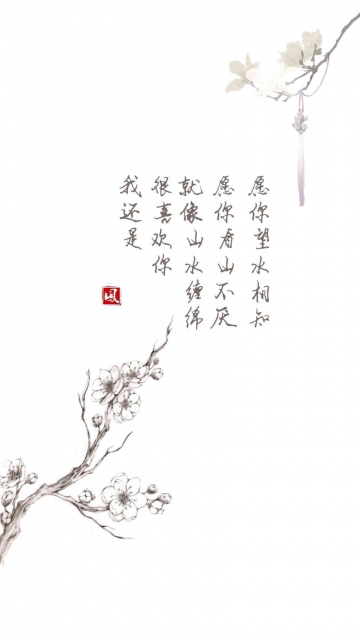 愿你望水相知
愿你看山不厌
就像山水缠绵
很喜欢你
我还是